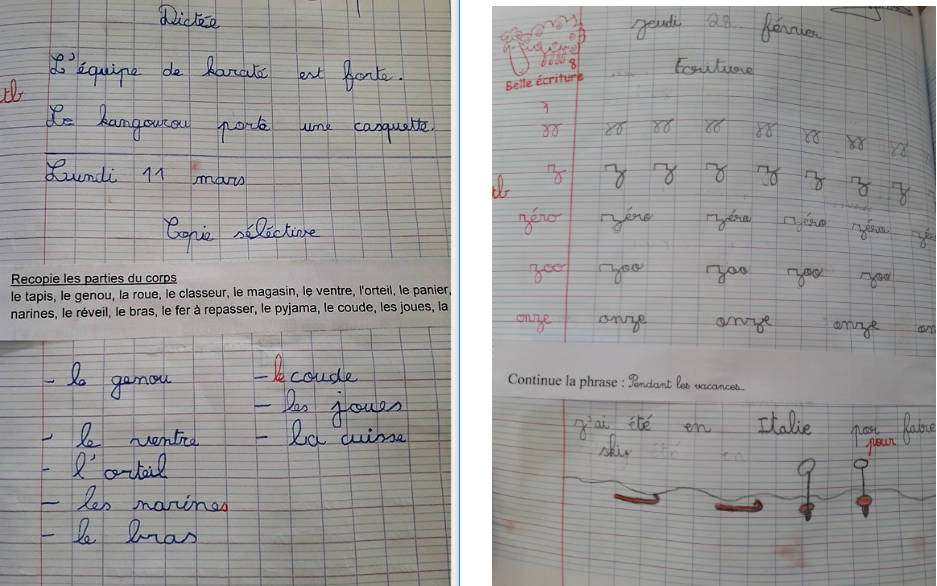 Dictée
L'équipe de karaté est forte.
tb
Le kangourou porte une casquette.
Lundi 11 mars
Copie séléctive
Recopie les parties du corps
le tapis, le genou, la roue, le classeur, le magasin, le ventre, l'orteil, le panier,
narines, le réveil, le bras, le fer à repasser, le pyjama, le coude, les joues, la
- le genou
- le ventre
- l'orteil
- les narines
- le bras
- le coude
- les joues
- la cuisse
jeudi 28 février
Belle écriture
8
Ecriture
tb
z z z z z z z z
zéro zéro zéro zéro zéro
zoo zoo zoo zoo zoo
onze onze onze onze on
Continue la phrase : Pendant les vacances
j'ai été en Italie por faire
pour
ski,